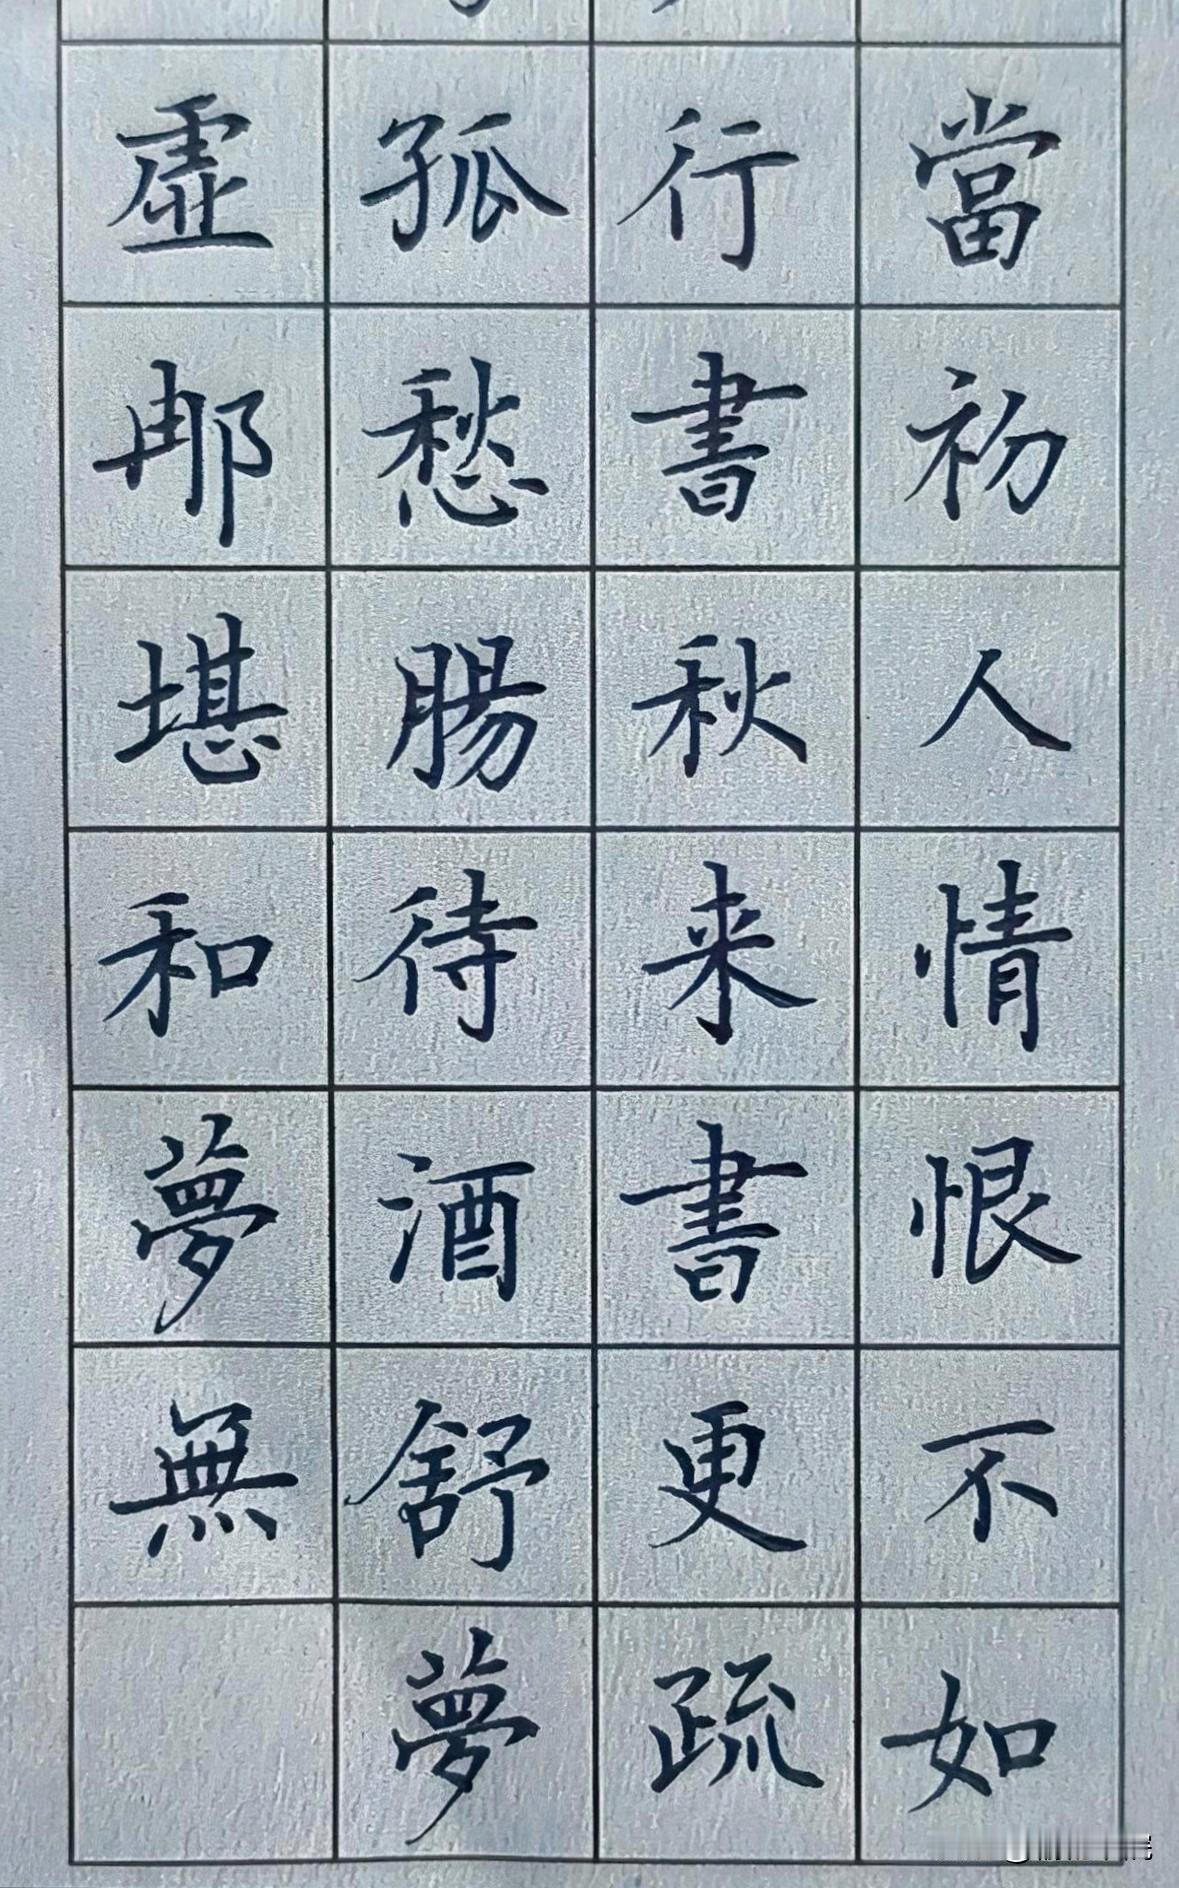 當初人情恨不如
行書秋来書更疏
孤愁腸待酒舒夢
虛那堪和夢無